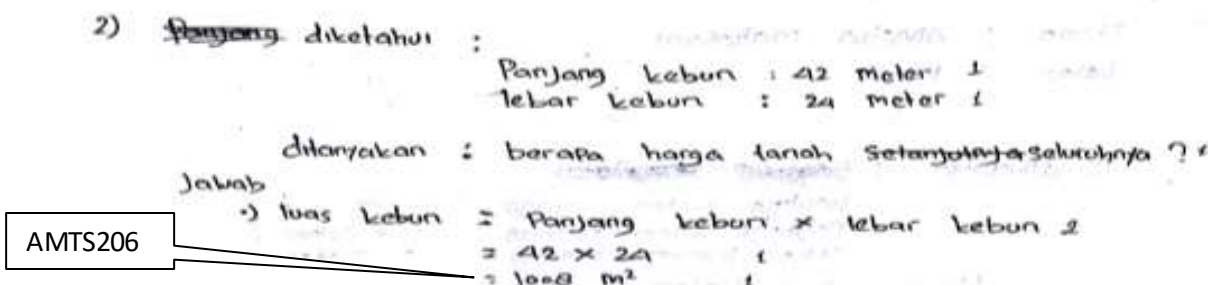 2) Panjang diketahui :
Panjang kebun : 42 meter 1
lebar kebun : 24 meter 1
ditanyakan : berapa harga tanah seluruhnya ? 1
Jawab
•) luas kebun = Panjang kebun x lebar kebun 2
= 42 x 24 1
AMTS206
= 1008 m² 1